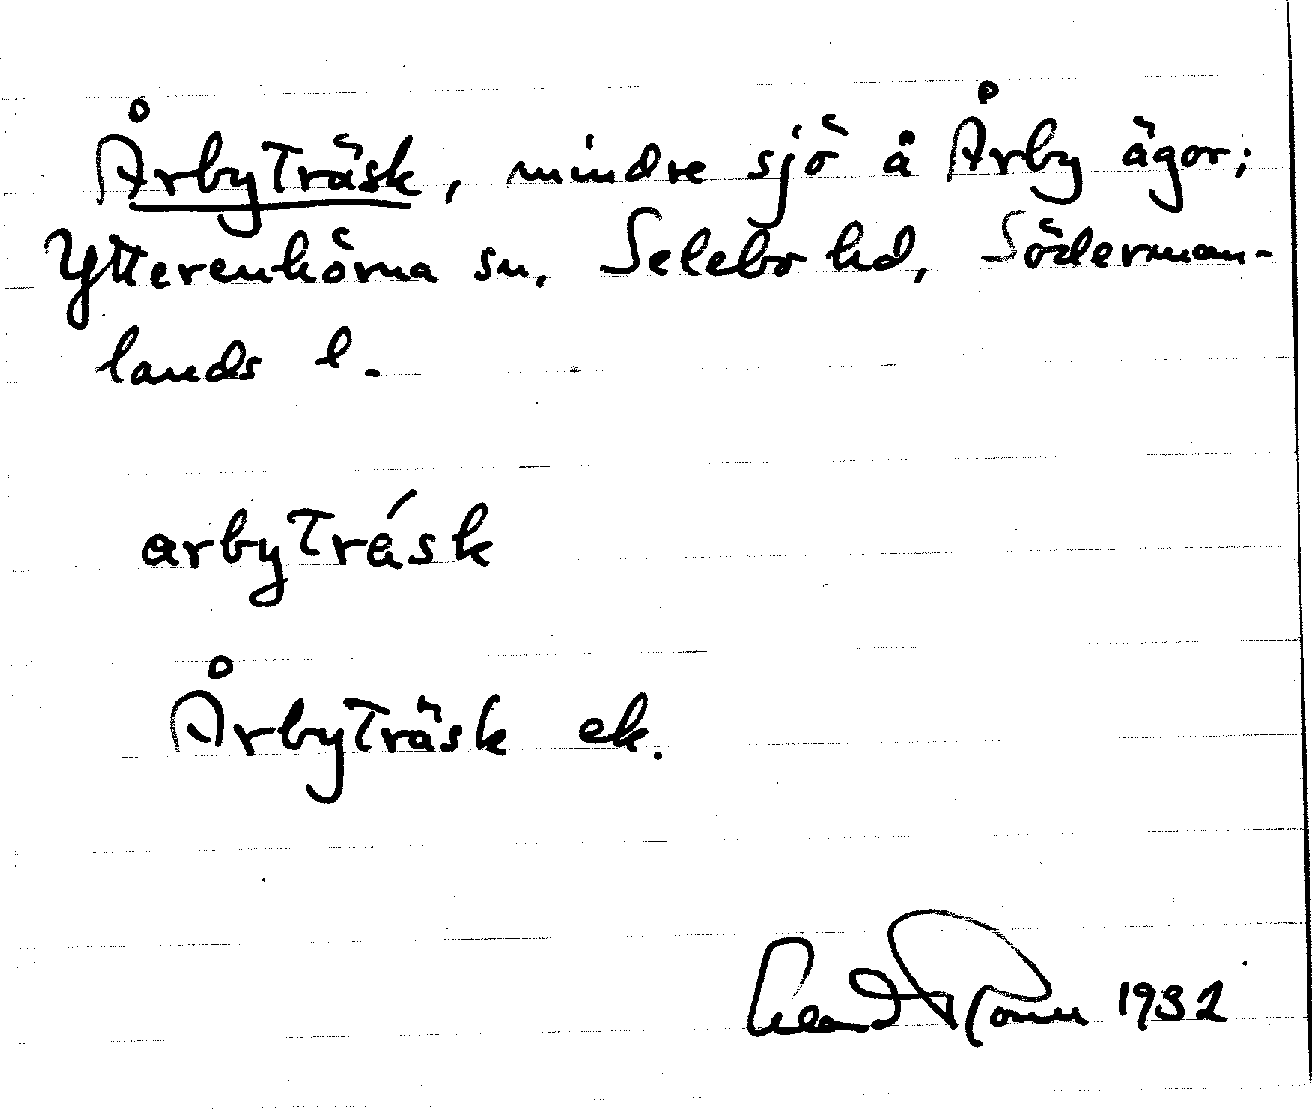 Årbyträsk, mindre sjö å Årby ägor;
Ytterenhörna sn, Selebo hd, Söderman-
lands l.
arbytrásk
Årbyträsk ek.
1932